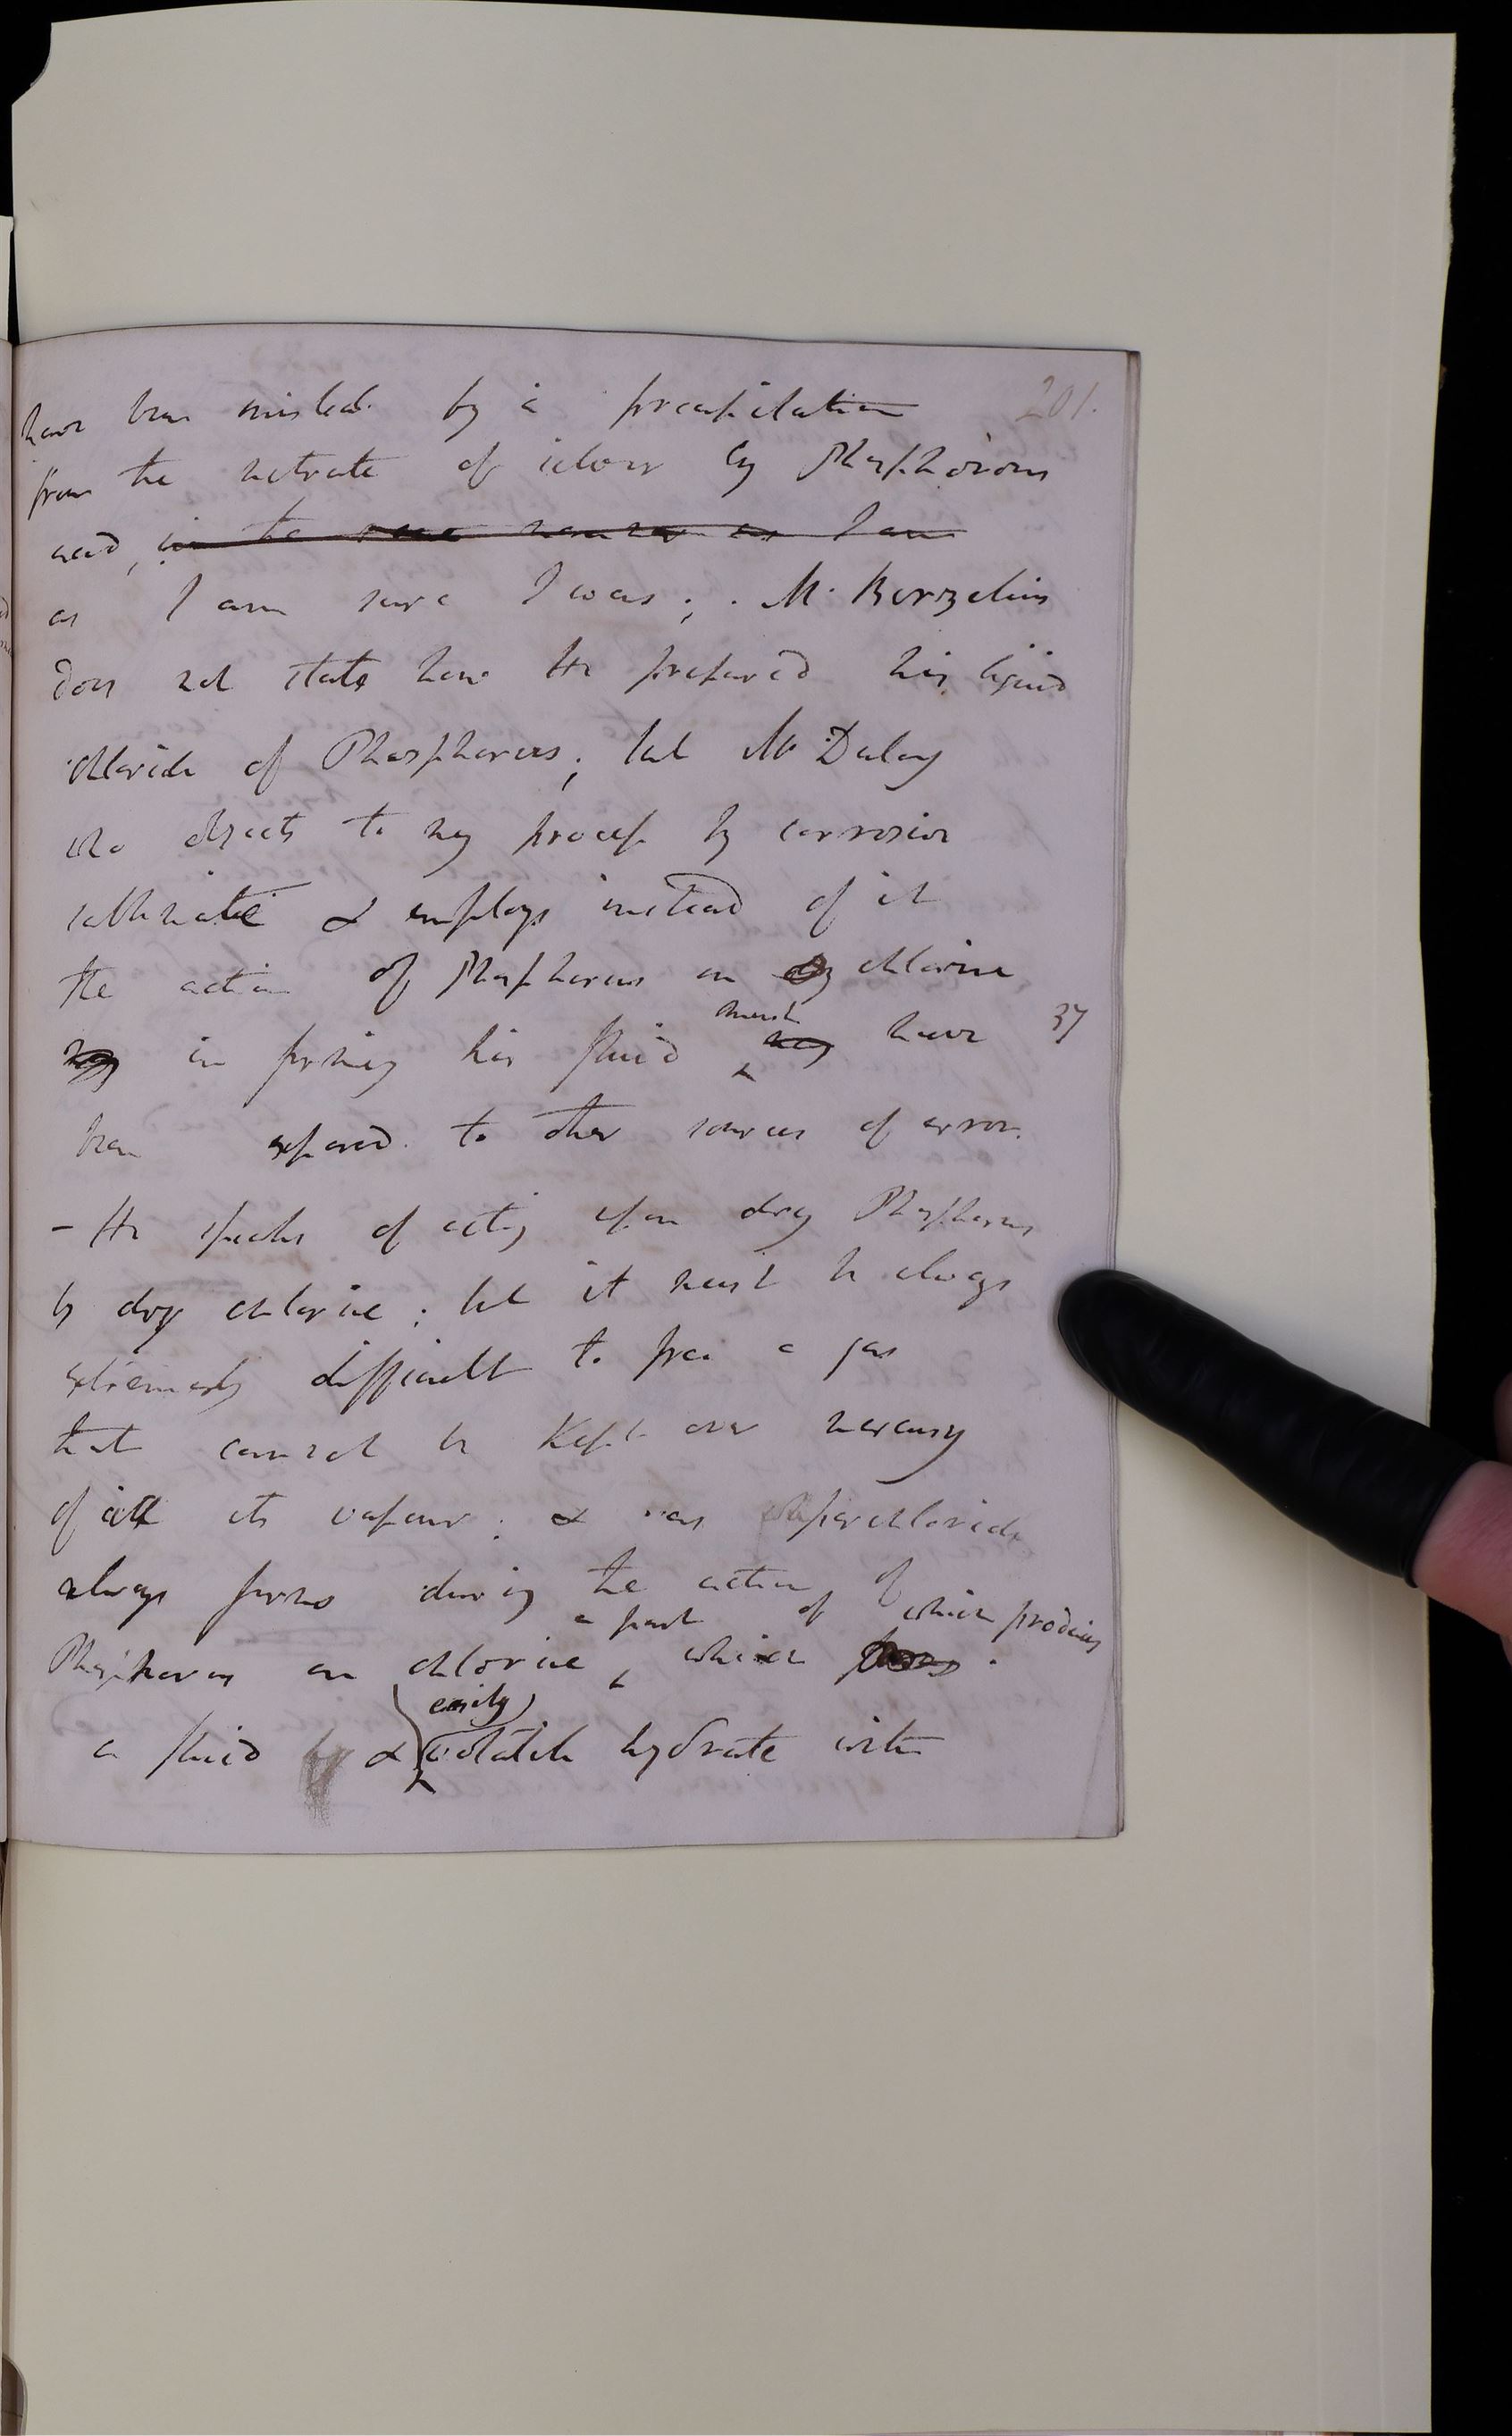 201.
have been misled by a precipitation
from the nitrate of silver by Phosphorous
acid, in the same manner as I am
as I am sure I was; . M. Berzelius
does not state how He prepared his liquid
chloride of Phosphorus; but Mr Dulong
who objects to my process by corrosive
sublimate & employs instead of it
the action of Phosphorus on chlorine
must
in forming his fluid may have 37
been exposed to other sources of error.
– He speaks of acting upon dry Phosphorus
by dry chlorine; but it must be always
extremely difficult to free a gas
that cannot be kept over mercury
of all its vapour; & as Superchloride
always forms during the action of
a part of which produces
Phosphorus on chlorine, which forms
easily
a fluid & volatile hydrate with